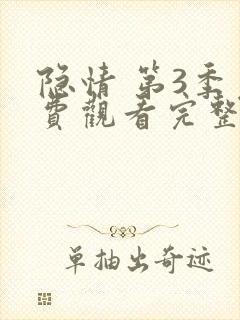 隐情 第3季
費觀看完整
单抽出奇迹